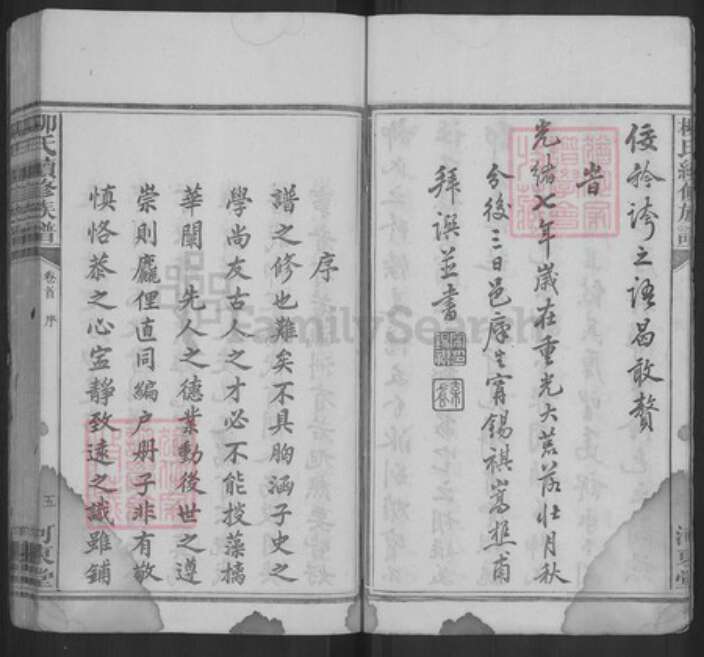 佞矜誇之語曷敢贅
旹
光緒七年歲在重光大荒落壯月秋
分後三日邑庠生甯錫祺嵩樵甫
拜譔並書
序
譜之修也難矣不具胸涵子史之
學尚友古人之才必不能掞藻摛
華闡 先人之德業動後世之遵
崇則龐俚直同編户册子非有敬
慎恪恭之心寍靜致遠之識雖鋪
柳氏續修族譜
卷首 序
五
河東堂
FamilySearch